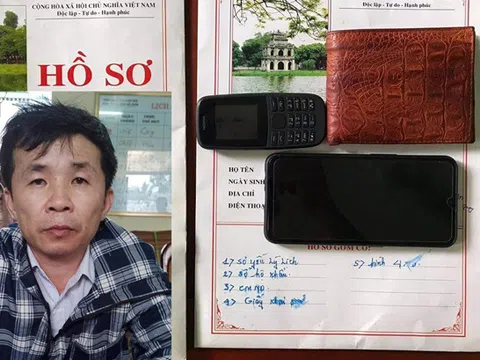 CỘNG HÒA XÃ HỘI CHỦ NGHĨA VIỆT NAM
Độc lập - Tự do - Hạnh phúc
HỒ SƠ
LỊCH
Độc lập - Tự do - Hạnh phúc
HỌ TÊN
NGÀY SINH
ĐỊA CHỈ
ĐIỆN THOẠI
HỒ SƠ GỒM CÓ:
1) Sơ yếu lý lịch
2) Sổ hộ khẩu
3) cmnd
4) Giấy khai
5) hình